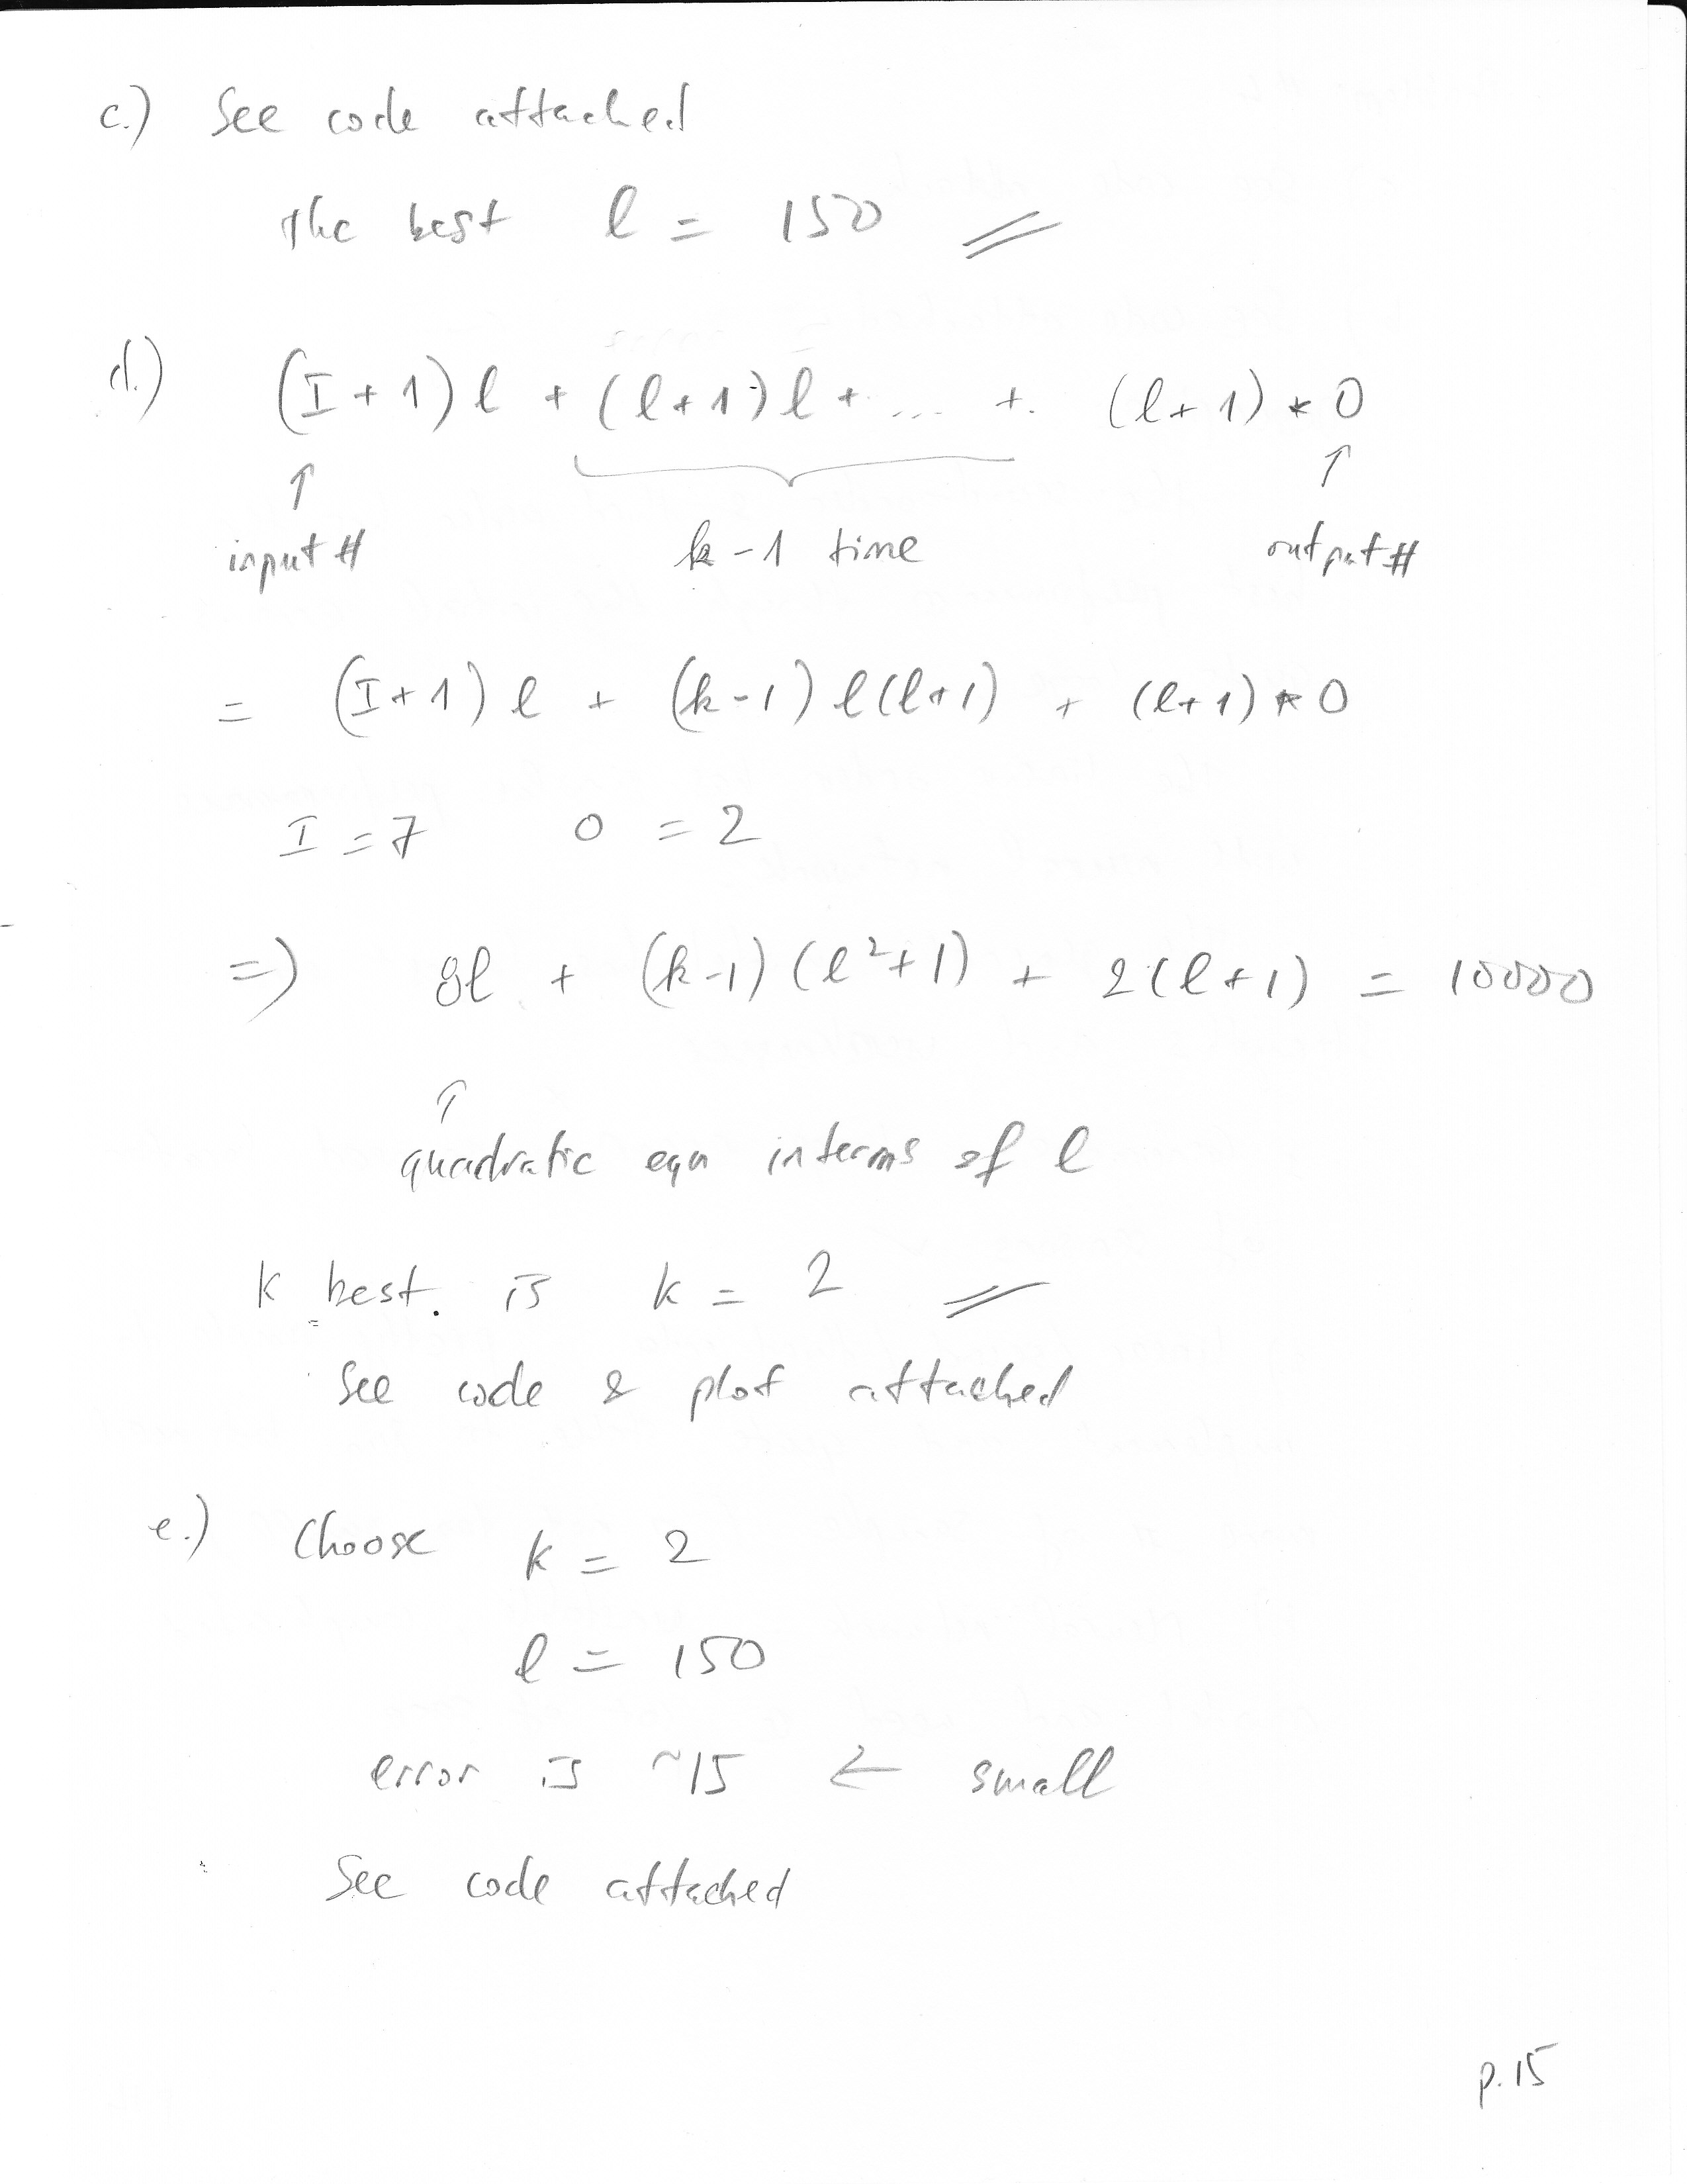 c.) See code attached
The best l = 150
d.) (I + 1) l + (l + 1) l + ... + (l + 1) * O
↑ ↑
input # k - 1 time output #
= (I + 1) l + (k - 1) l (l + 1) + (l + 1) * O
I = 7 O = 2
=) 8l + (k - 1) (l² + 1) + 2 (l + 1) = 10000
↑
quadratic eqn in terms of l
k best. is k = 2
See code & plot attached
e.) Choose k = 2
l = 150
error is ~15 ← small
See code attached
p. 15